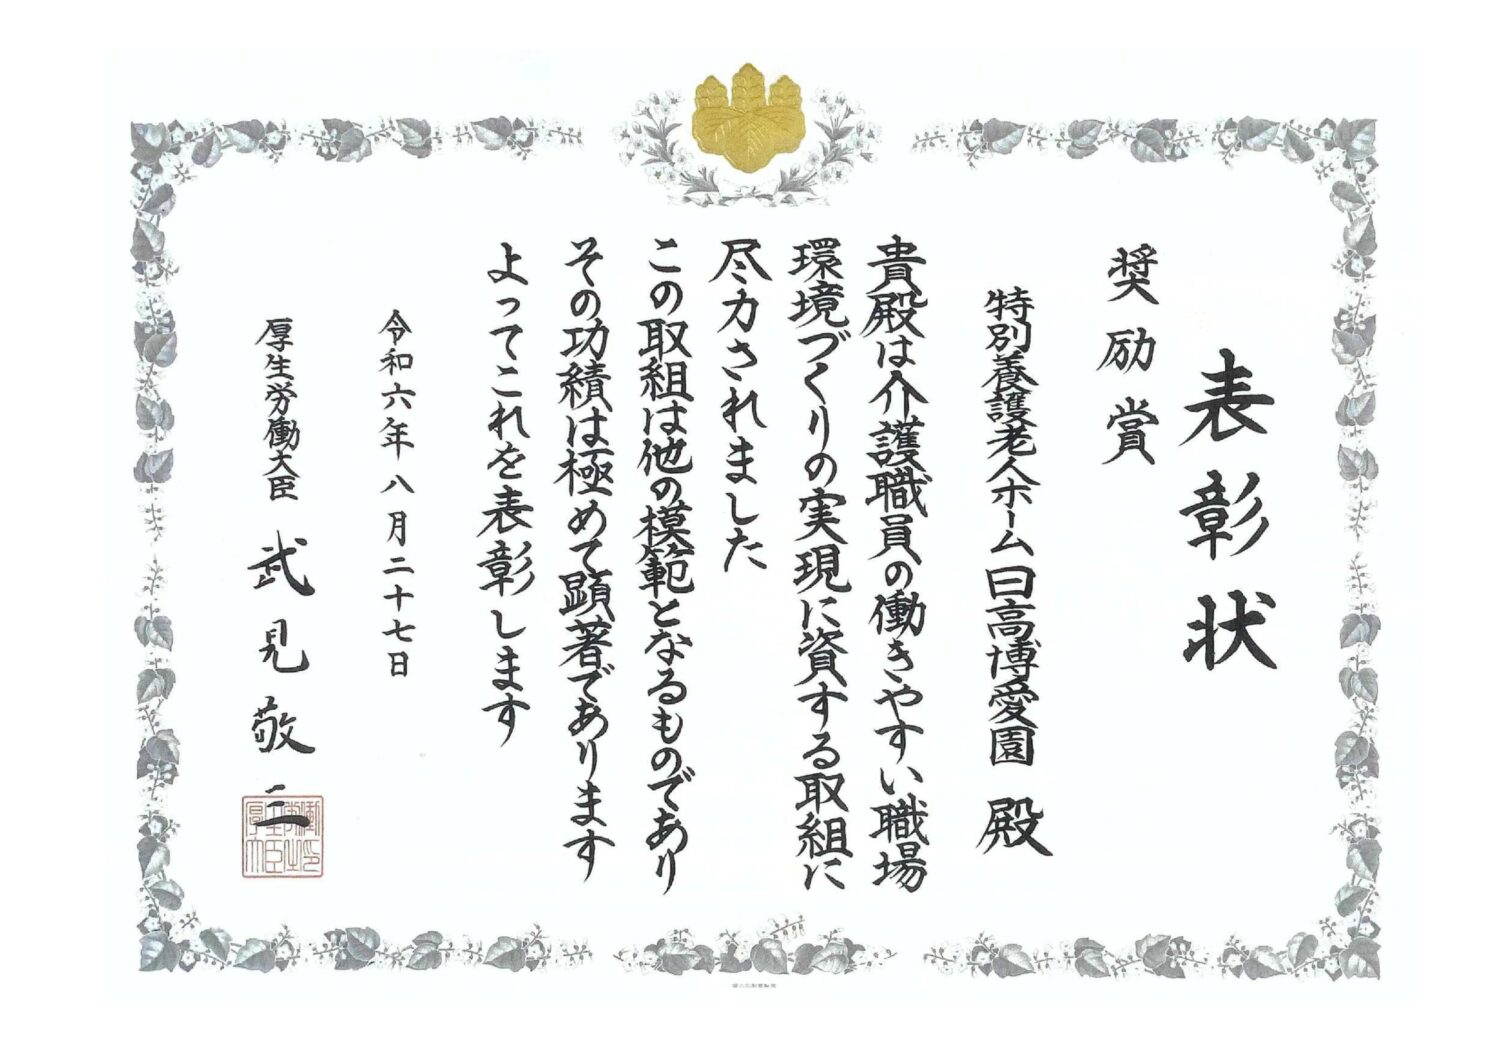 表彰状
奨励賞
特別養護老人ホーム日高博愛園 殿
貴殿は介護職員の働きやすい職場
環境づくりの実現に資する取組に
尽力されました
この取組は他の模範となるものであり
その功績は極めて顕著であります
よってこれを表彰します
令和六年八月二十七日
厚生労働大臣 武見敬三